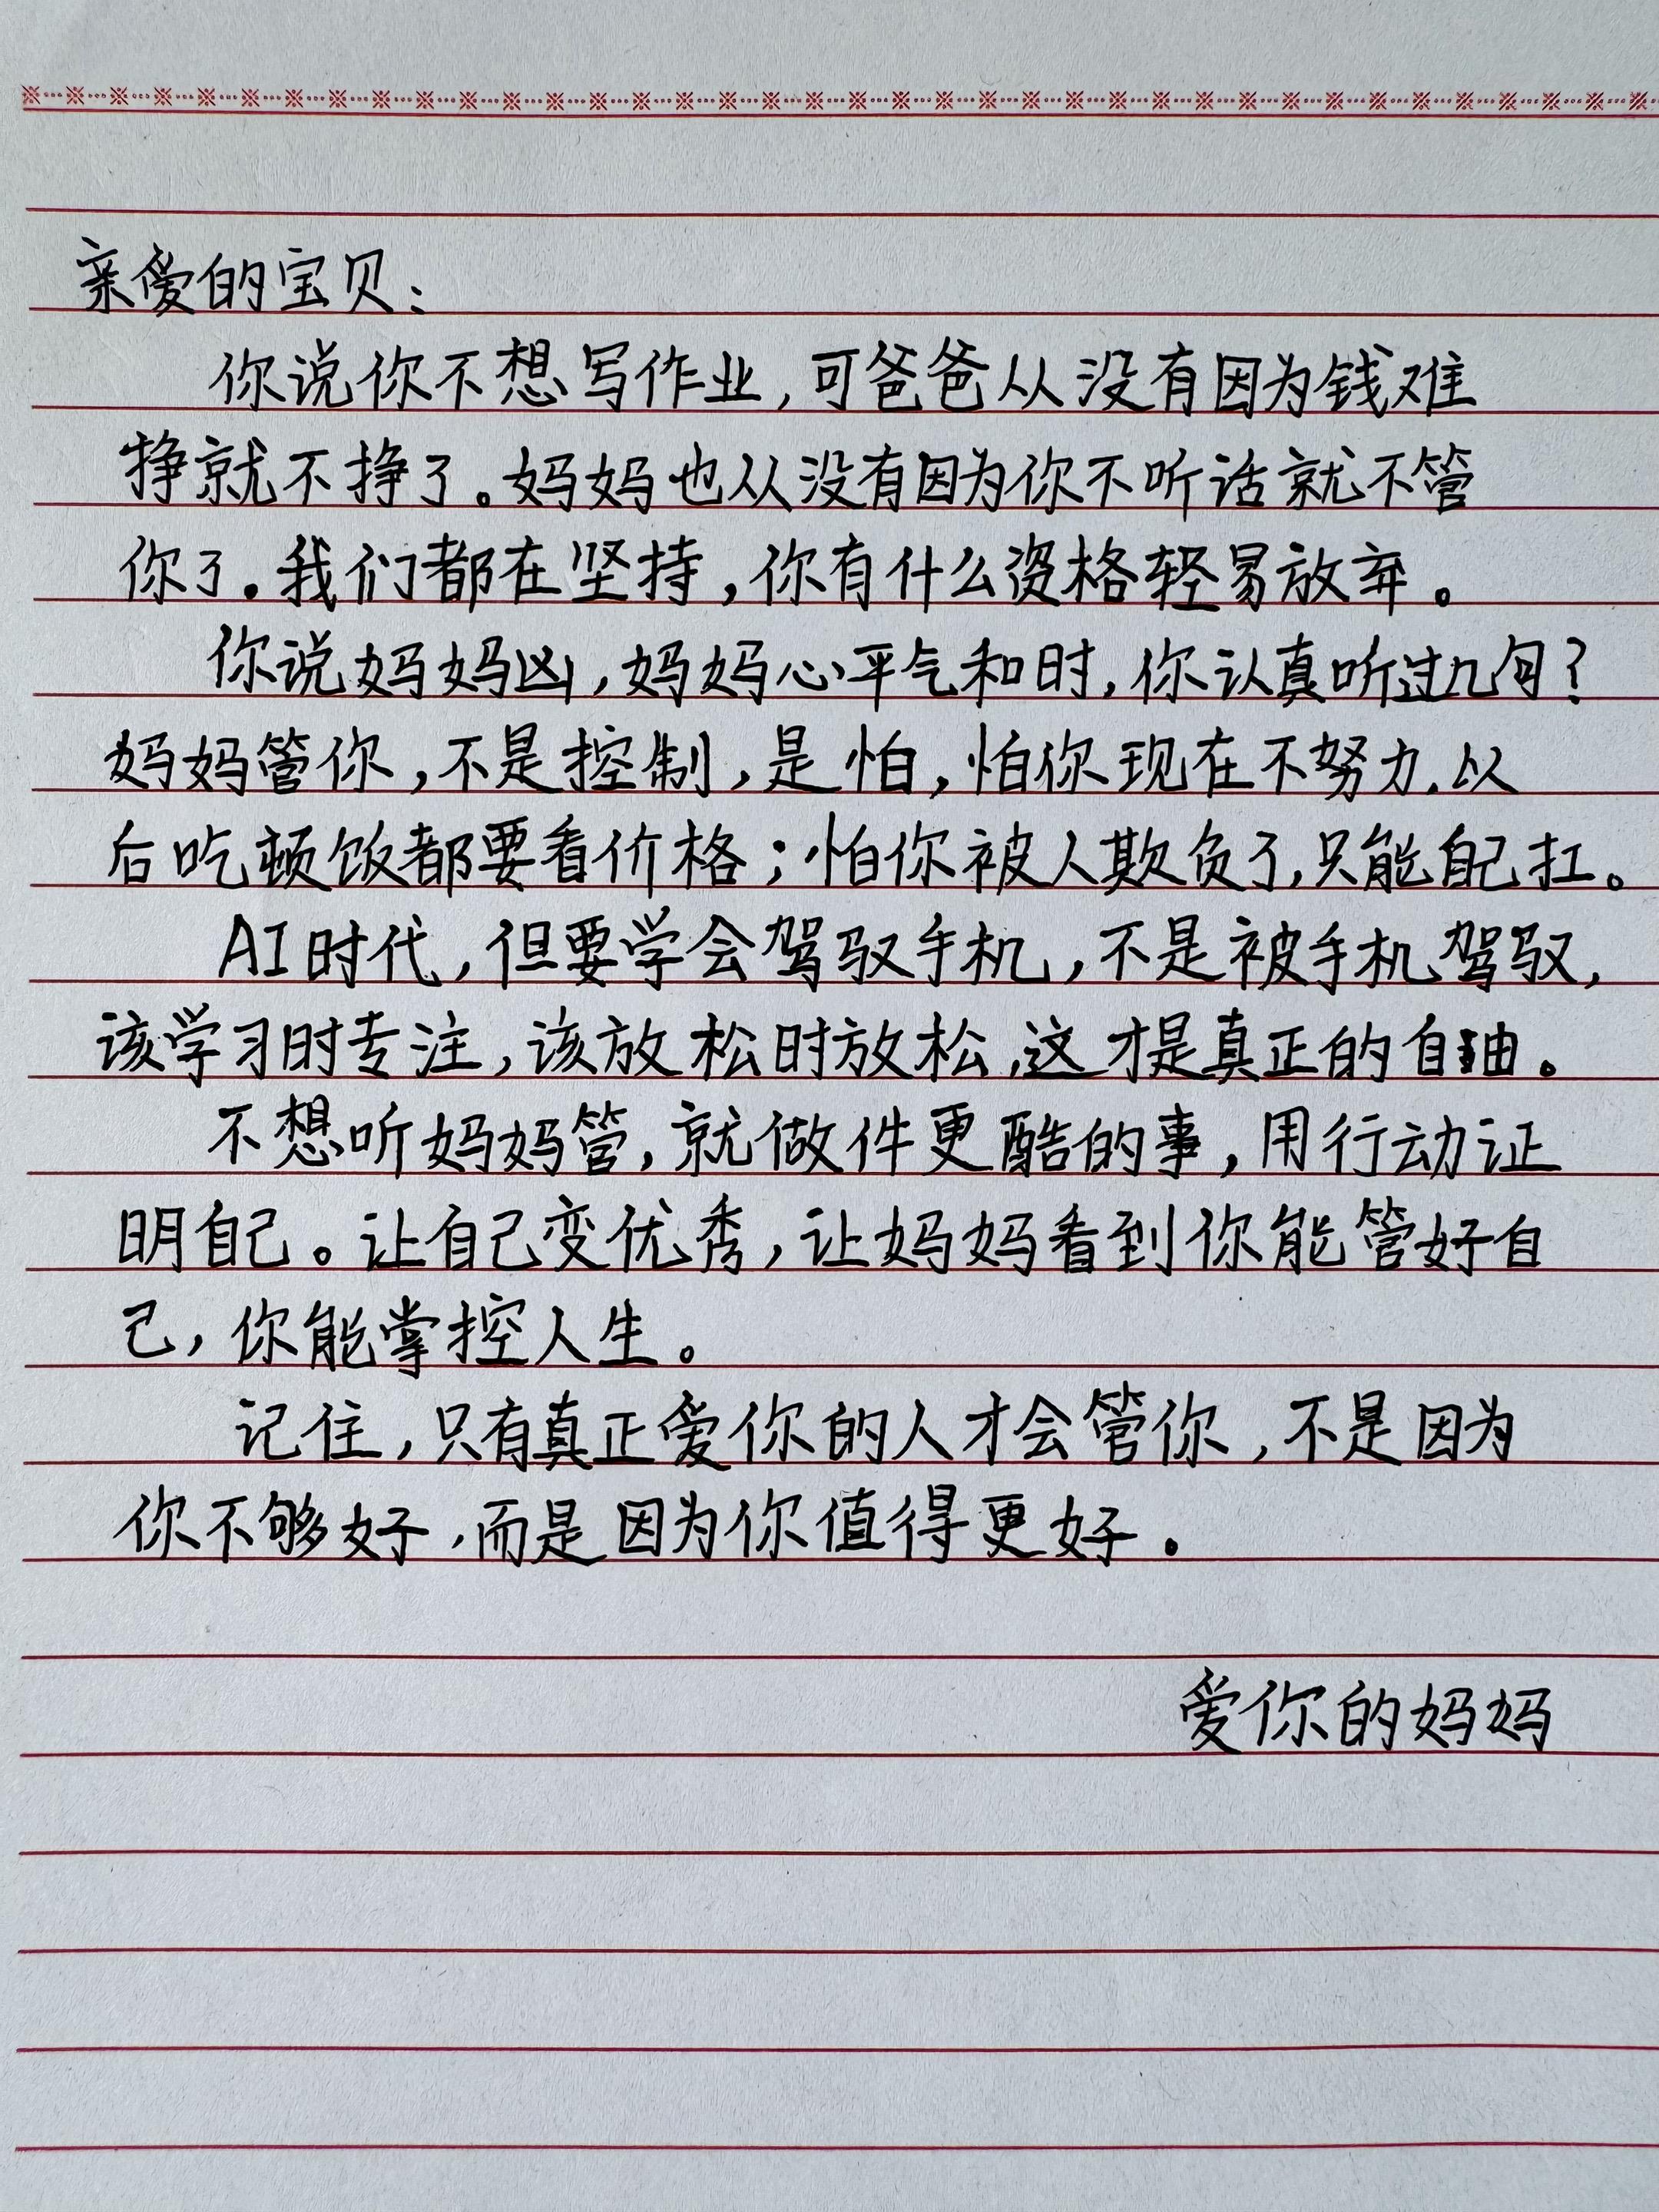 亲爱的宝贝：
你说你不想写作业，可爸爸从没有因为钱难
挣就不挣了。妈妈也从没有因为你不听话就不管
你了。我们都在坚持，你有什么资格轻易放弃。
你说妈妈凶，妈妈心平气和时，你认真听过几句？
妈妈管你，不是控制，是怕，怕你现在不努力，以
后吃顿饭都要看价格；怕你被人欺负了，只能自己扛。
AI时代，但要学会驾驭手机，不是被手机驾驭，
该学习时专注，该放松时放松，这才是真正的自由。
不想听妈妈管，就做件更酷的事，用行动证
明自己。让自己变优秀，让妈妈看到你能管好自
己，你能掌控人生。
记住，只有真正爱你的人才会管你，不是因为
你不够好，而是因为你值得更好。
爱你的妈妈